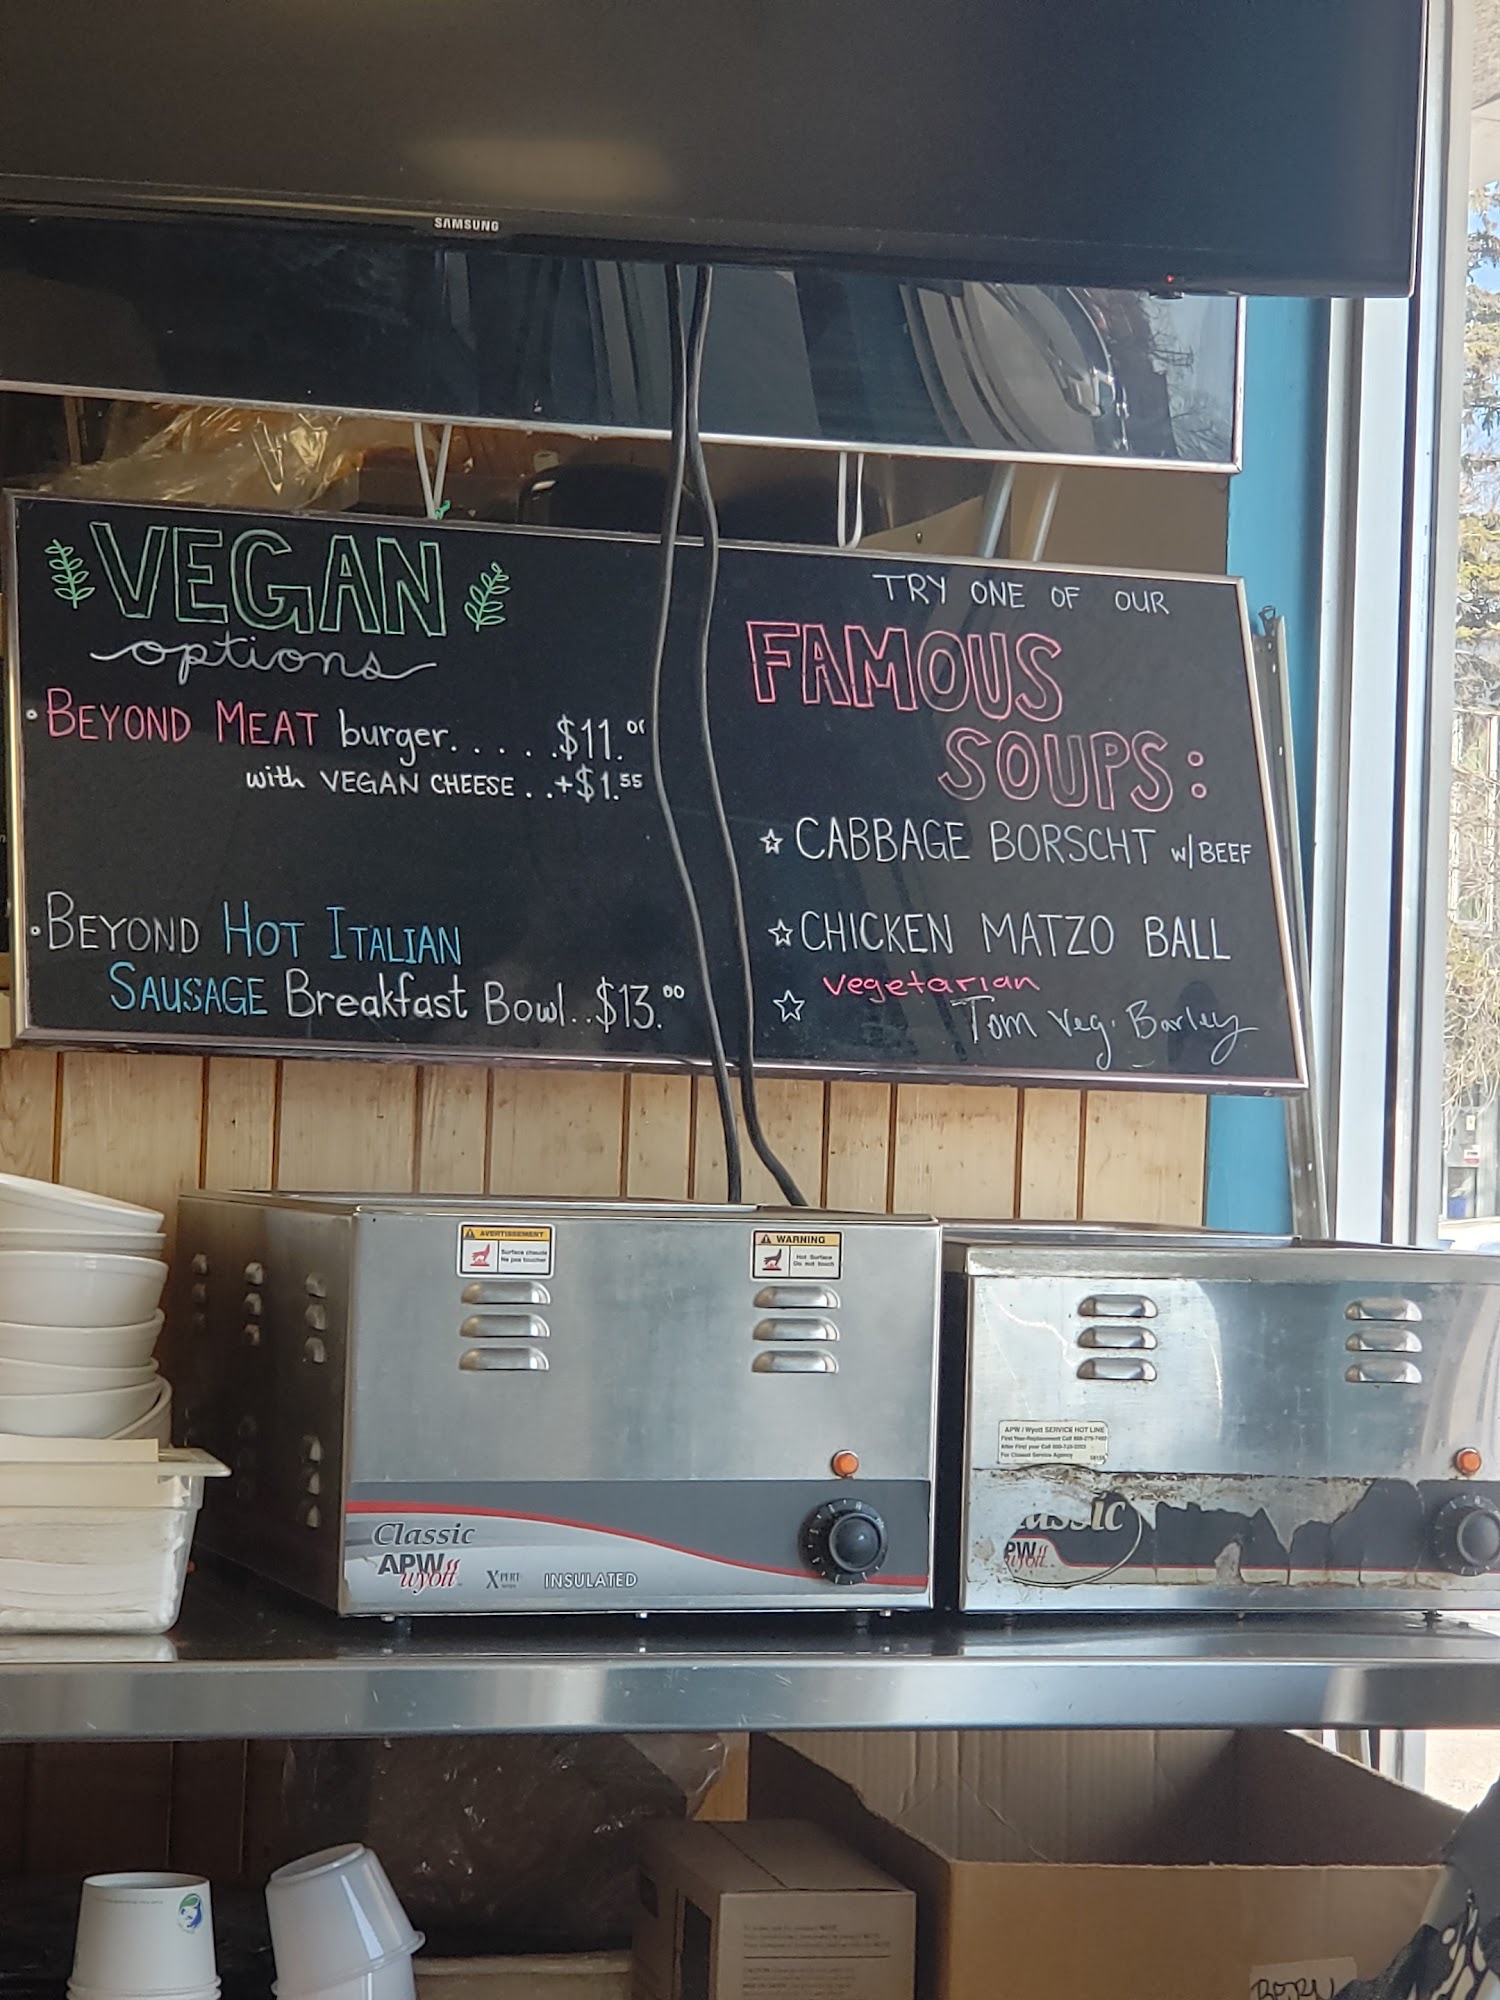 SAMSUNG
VEGAN
options
BEYOND MEAT burger. . . . . .$11.
with VEGAN CHEESE . . +$1.55
BEYOND HOT ITALIAN
SAUSAGE Breakfast Bowl. . $13.00
TRY ONE OF OUR
FAMOUS
SOUPS:
☆ CABBAGE BORSCHT w/ BEEF
☆ CHICKEN MATZO BALL
vegetarian
☆ Tom Veg. Barley
AVERTISSEMENT
Surface chaude
Ne pas toucher
WARNING
Hot Surface
Do not touch
Classic
APW
wyott
XPERT
INSULATED
APW / Wyott SERVICE HOT LINE
First Year-Replacement Call
After First year Call
For Closest Service Agency
assic
PW
wyott